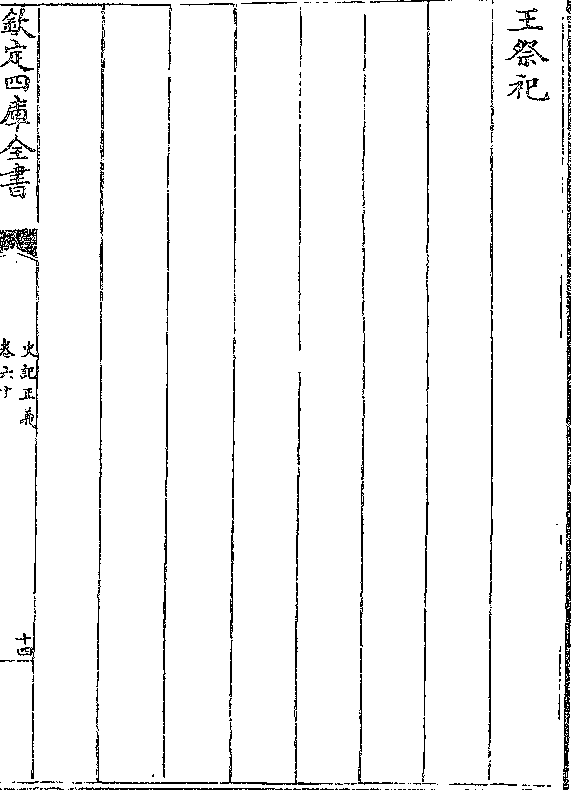 王祭祀
欽定四庫全書
史記正義
卷六十
十四